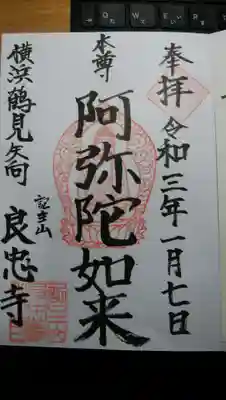 奉拝
令和三年一月七日
本尊
阿弥陀如来
横浜鶴見矢向
記主山
良忠寺